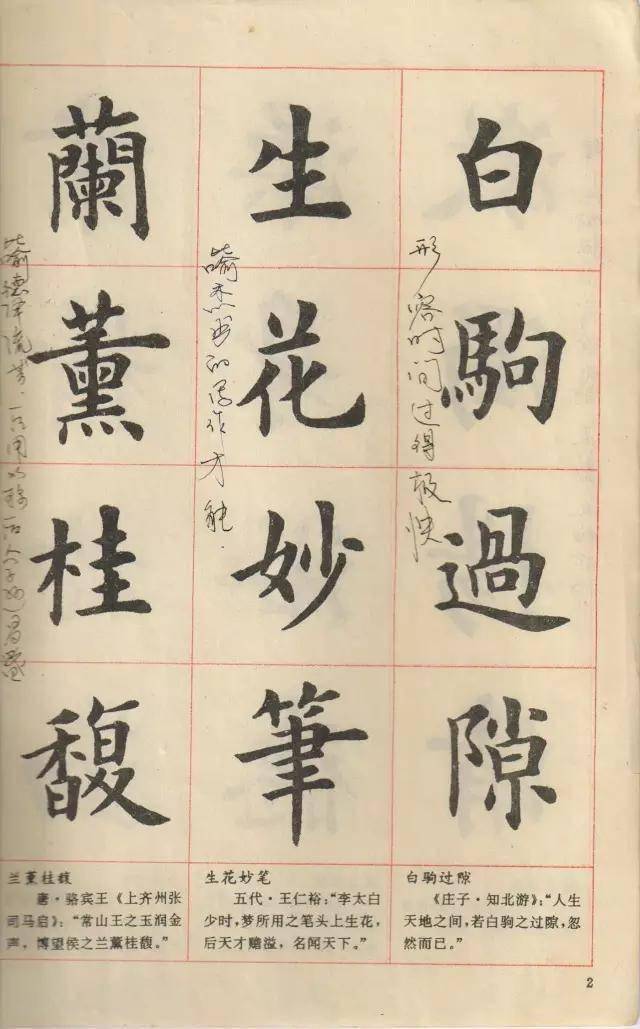 白駒過隙
形容时间过得极快
《庄子·知北游》：“人生
天地之间，若白驹之过隙，忽
然而已。”
白驹过隙
生花妙筆
喻杰出的写作才能.
生花妙笔
五代·王仁裕：“李太白
少时，梦所用之笔头上生花，
后天才赡溢，名闻天下。”
蘭薰桂馥
喻德泽流芳
兰薰桂馥
唐·骆宾王《上齐州张
司马启》：“常山王之玉润金
声，博望侯之兰薰桂馥。”
2